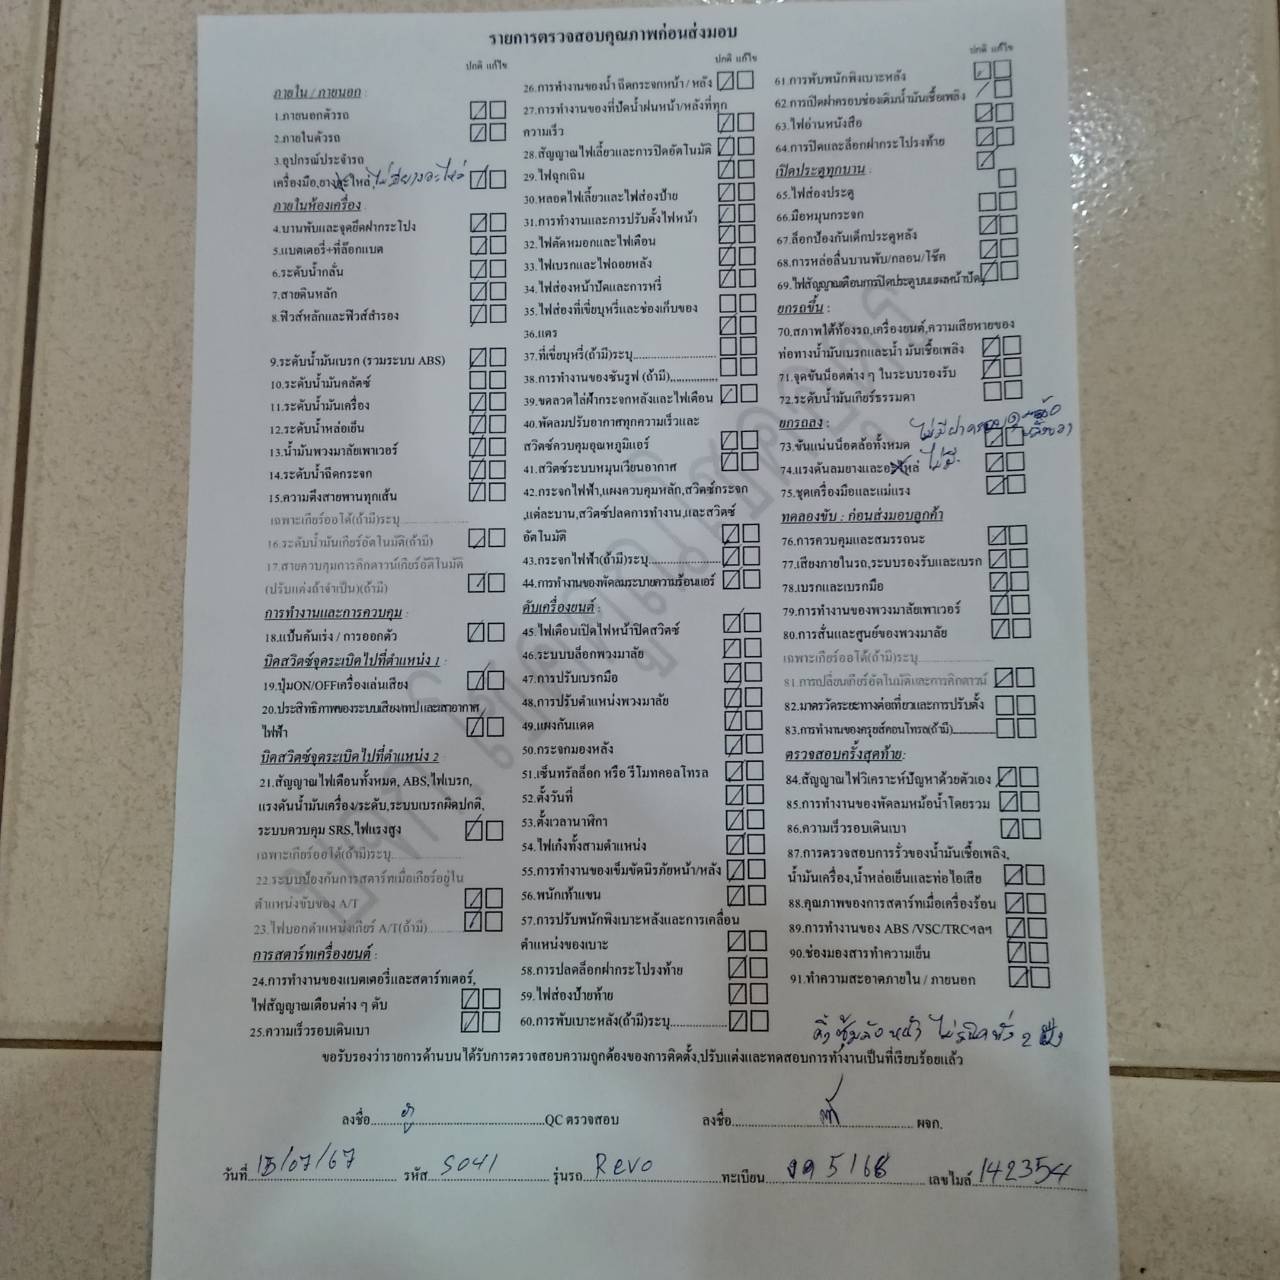 รายการตรวจสอบคุณภาพก่อนส่งมอบ
ปกติ แก้ไข
ภายใน / ภายนอก :
1.ภายนอกตัวรถ
2.ภายในตัวรถ
3.อุปกรณ์ประจำรถ
เครื่องมือ,ยางอะไหล่ ไม่มียางอะไหล่
ภายในห้องเครื่อง :
4.บานพับและจุดยึดฝากระโปง
5.แบตเตอรี่+ที่ล๊อกแบต
6.ระดับน้ำกลั่น
7.สายดินหลัก
8.ฟิวส์หลักและฟิวส์สำรอง
9.ระดับน้ำมันเบรก (รวมระบบ ABS)
10.ระดับน้ำมันคลัตซ์
11.ระดับน้ำมันเครื่อง
12.ระดับน้ำหล่อเย็น
13.น้ำมันพวงมาลัยเพาเวอร์
14.ระดับน้ำฉีดกระจก
15.ความตึงสายพานทุกเส้น
เฉพาะเกียร์ออโต้(ถ้ามี)ระบุ
16.ระดับน้ำมันเกียร์อัตโนมัติ(ถ้ามี)
17.สายควบคุมการคิกดาวน์เกียร์อัติโนมัติ
(ปรับแต่งถ้าจำเป็น)(ถ้ามี)
การทำงานและการควบคุม :
18.แป้นคันเร่ง / การออกตัว
บิดสวิตซ์จุดระเบิดไปที่ตำแหน่ง 1 :
19.ปุ่มON/OFFเครื่องเล่นเสียง
20.ประสิทธิภาพของระบบเสียง/เทปและเสาอากาศ
ไฟฟ้า
บิดสวิตซ์จุดระเบิดไปที่ตำแหน่ง 2
21.สัญญาณไฟเตือนทั้งหมด, ABS,ไฟเบรก,
แรงดันน้ำมันเครื่อง/ระดับ,ระบบเบรกผิดปกติ,
ระบบควบคุม SRS,ไฟแรงสูง
เฉพาะเกียร์ออโต้(ถ้ามี)ระบุ
22.ระบบป้องกันการสตาร์ทเมื่อเกียร์อยู่ใน
ตำแหน่งขับของ A/T
23.ไฟบอกตำแหน่งเกียร์ A/T(ถ้ามี)
การสตาร์ทเครื่องยนต์ :
24.การทำงานของแบตเตอรี่และสตาร์ทเตอร์,
ไฟสัญญาณเตือนต่าง ๆ ดับ
25.ความเร็วรอบเดินเบา
ปกติ แก้ไข
26.การทำงานของน้ำ ฉีดกระจกหน้า / หลัง
27.การทำงานของที่ปัดน้ำฝนหน้า/หลังที่ทุก
ความเร็ว
28.สัญญาณไฟเลี้ยวและการปิดอัตโนมัติ
29.ไฟฉุกเฉิน
30.หลอดไฟเลี้ยวและไฟส่องป้าย
31.การทำงานและการปรับตั้งไฟหน้า
32.ไฟตัดหมอกและไฟเตือน
33.ไฟเบรกและไฟถอยหลัง
34.ไฟส่องหน้าปัดและการหรี่
35.ไฟส่องที่เขี่ยบุหรี่และช่องเก็บของ
36.แตร
37.ที่เขี่ยบุหรี่(ถ้ามี)ระบุ
38.การทำงานของซันรูฟ (ถ้ามี)
39.ขดลวดไล่ฝ้ากระจกหลังและไฟเตือน
40.พัดลมปรับอากาศทุกความเร็วและ
สวิตซ์ควบคุมอุณหภูมิแอร์
41.สวิตซ์ระบบหมุนเวียนอากาศ
42.กระจกไฟฟ้า,แผงควบคุมหลัก,สวิตซ์กระจก
,แต่ละบาน,สวิตซ์ปลดการทำงาน,และสวิตซ์
อัตโนมัติ
43.กระจกไฟฟ้า(ถ้ามี)ระบุ
44.การทำงานของพัดลมระบายความร้อนแอร์
ดับเครื่องยนต์ :
45.ไฟเตือนเปิดไฟหน้าปิดสวิตซ์
46.ระบบบล็อกพวงมาลัย
47.การปรับเบรกมือ
48.การปรับตำแหน่งพวงมาลัย
49.แผงกันแดด
50.กระจกมองหลัง
51.เซ็นทรัลล็อก หรือ รีโมทคอลโทรล
52.ตั้งวันที่
53.ตั้งเวลานาฬิกา
54.ไฟเก๋งทั้งสามตำแหน่ง
55.การทำงานของเข็มขัดนิรภัยหน้า/หลัง
56.พนักเท้าแขน
57.การปรับพนักพิงเบาะหลังและการเคลื่อน
ตำแหน่งของเบาะ
58.การปลดล็อกฝากระโปรงท้าย
59.ไฟส่องป้ายท้าย
60.การพับเบาะหลัง(ถ้ามี)ระบุ
ปกติ แก้ไข
61.การพับพนักพิงเบาะหลัง
62.การเปิดฝาครอบช่องเติมน้ำมันเชื้อเพลิง
63.ไฟอ่านหนังสือ
64.การปิดและล็อกฝากระโปรงท้าย
เปิดประตูทุกบาน :
65.ไฟส่องประตู
66.มือหมุนกระจก
67.ล็อกป้องกันเด็กประตูหลัง
68.การหล่อลื่นบานพับ/กลอน/โช๊ค
69.ไฟสัญญาณเตือนการปิดประตูบนแผงหน้าปัด
ยกรถขึ้น :
70.สภาพใต้ท้องรถ,เครื่องยนต์,ความเสียหายของ
ท่อทางน้ำมันเบรกและน้ำ มันเชื้อเพลิง
71.จุดขันน็อตต่าง ๆ ในระบบรองรับ
72.ระดับน้ำมันเกียร์ธรรมดา
ยกรถลง :
73.ขันแน่นน็อตล้อทั้งหมด ไม่มีฝาครอบ
74.แรงดันลมยางและอะไหล่ ไม่มี
75.ชุดเครื่องมือและแม่แรง
ทดลองขับ : ก่อนส่งมอบลูกค้า
76.การควบคุมและสมรรถนะ
77.เสียงภายในรถ,ระบบรองรับและเบรก
78.เบรกและเบรกมือ
79.การทำงานของพวงมาลัยเพาเวอร์
80.การสั่นและศูนย์ของพวงมาลัย
เฉพาะเกียร์ออโต้(ถ้ามี)ระบุ
81.การเปลี่ยนเกียร์อัตโนมัติและการคิกดาวน์
82.มาตรวัดระยะทางต่อเที่ยวและการปรับตั้ง
83.การทำงานของครูยส์คอนโทรล(ถ้ามี)
ตรวจสอบครั้งสุดท้าย:
84.สัญญาณไฟวิเคราะห์ปัญหาด้วยตัวเอง
85.การทำงานของพัดลมหม้อน้ำโดยรวม
86.ความเร็วรอบเดินเบา
87.การตรวจสอบการรั่วของน้ำมันเชื้อเพลิง,
น้ำมันเครื่อง,น้ำหล่อเย็นและท่อไอเสีย
88.คุณภาพของการสตาร์ทเมื่อเครื่องร้อน
89.การทำงานของ ABS /VSC/TRCฯลฯ
90.ช่องมองสารทำความเย็น
91.ทำความสะอาดภายใน / ภายนอก
คิ้วซุ้มล้อหน้า ไม่สนิททั้ง 2 ฝั่ง
ขอรับรองว่ารายการด้านบนได้รับการตรวจสอบความถูกต้องของการติดตั้ง,ปรับแต่งและทดสอบการทำงานเป็นที่เรียบร้อยแล้ว
ลงชื่อ QC ตรวจสอบ ลงชื่อ ผจก.
วันที่ 15/07/67 รหัส S041 รุ่นรถ Revo ทะเบียน งด 5168 เลขไมล์ 142354